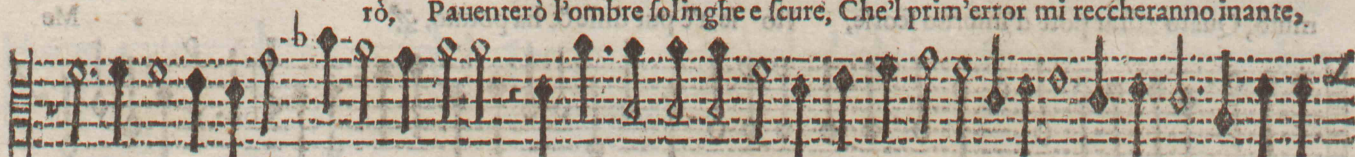 rò, Pauenterò l'ombre ſolinghe e ſcure, Che'l prim'error mi reccheranno inante,